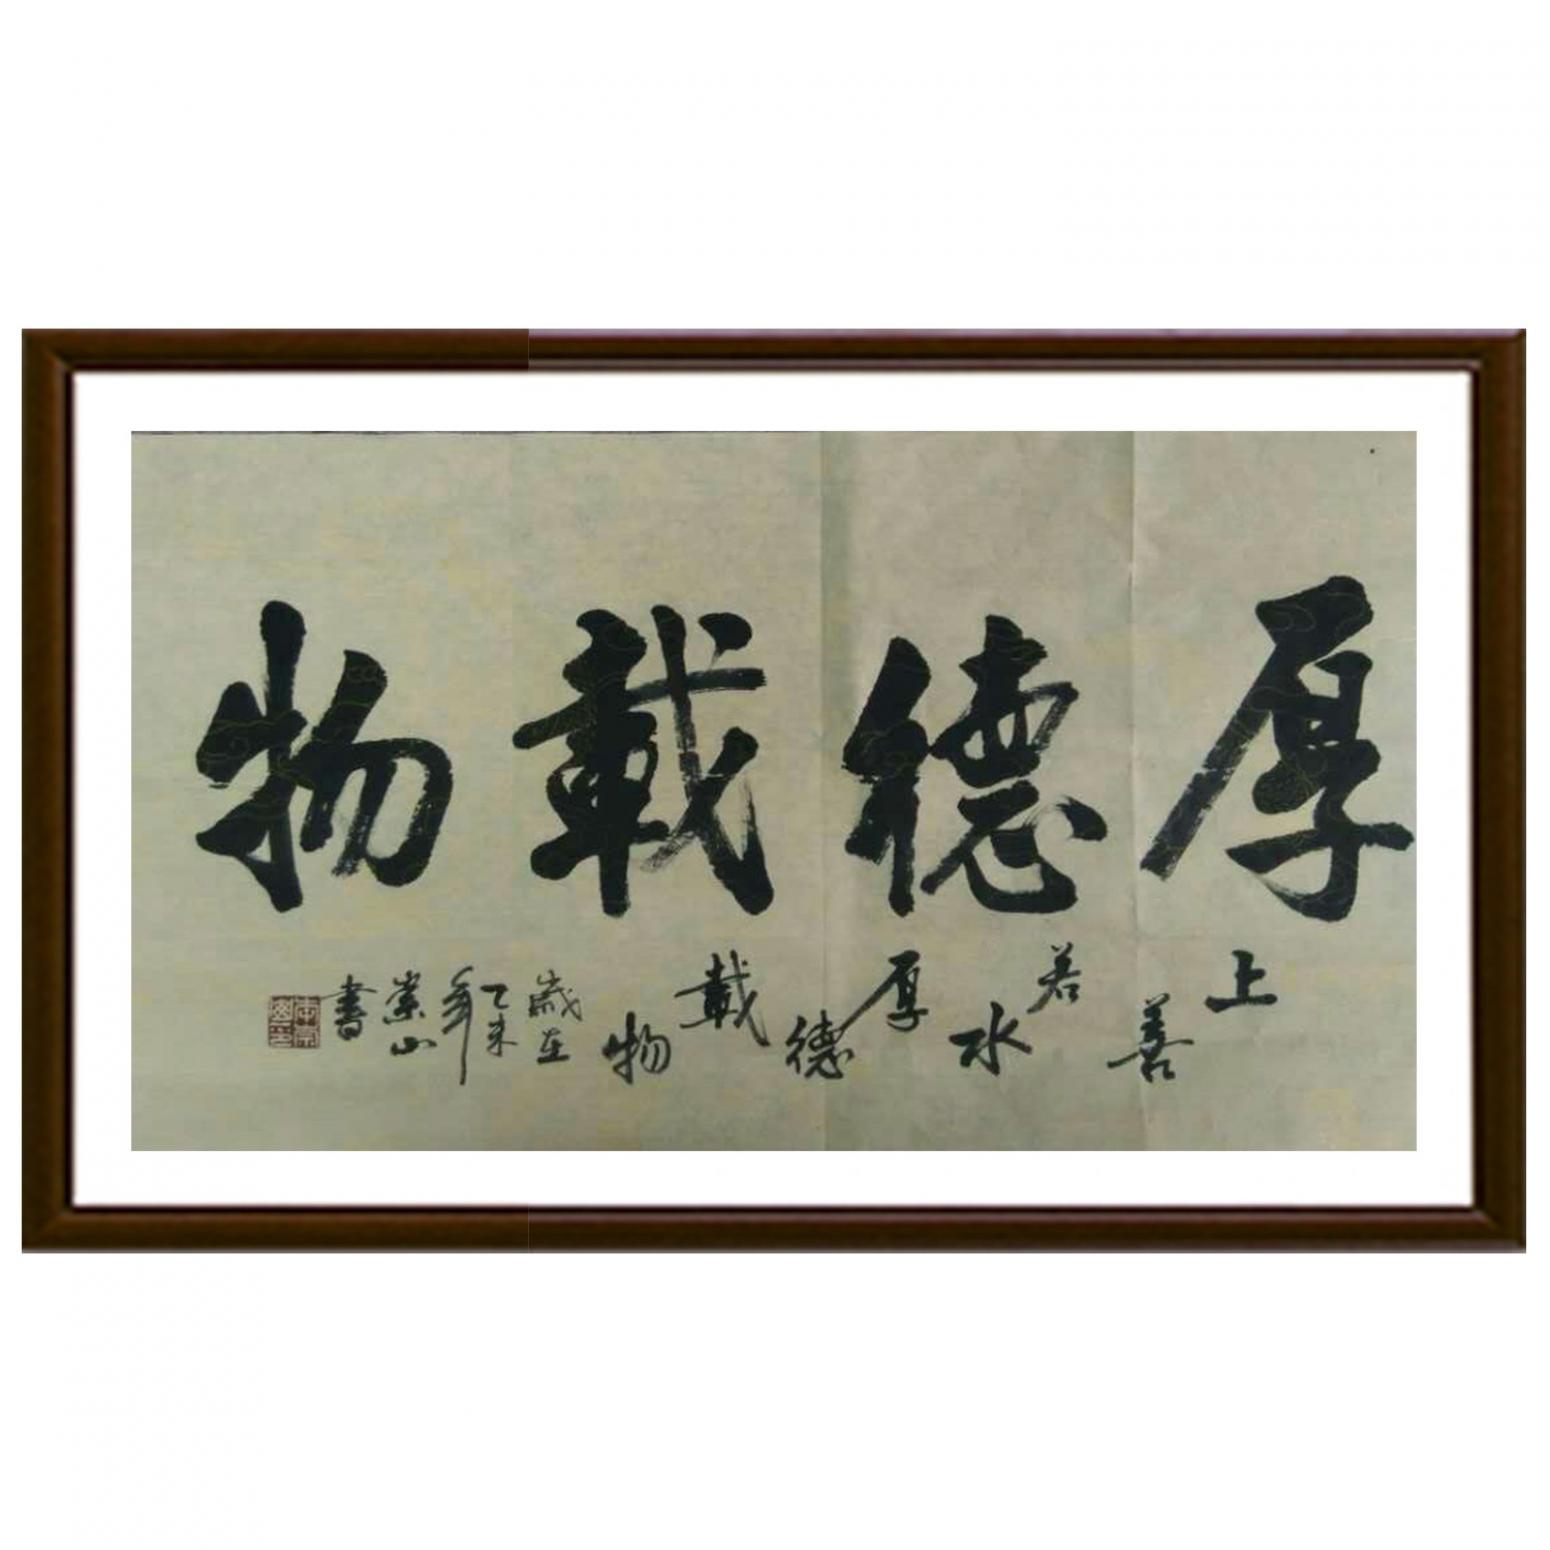 厚德載物
上善若水厚德載物歲在乙未年崇山書